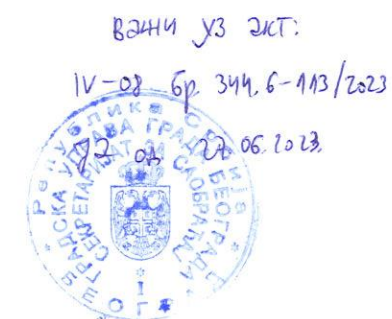 Важи уз акт:
IV-08 бр. 344.6-113/2023
од 27.06.2023.
Република Србија
ГРАДСКА УПРАВА ГРАДА БЕОГРАДА
СЕКРЕТАРИЈАТ ЗА САОБРАЋАЈ
I
БЕОГРАД